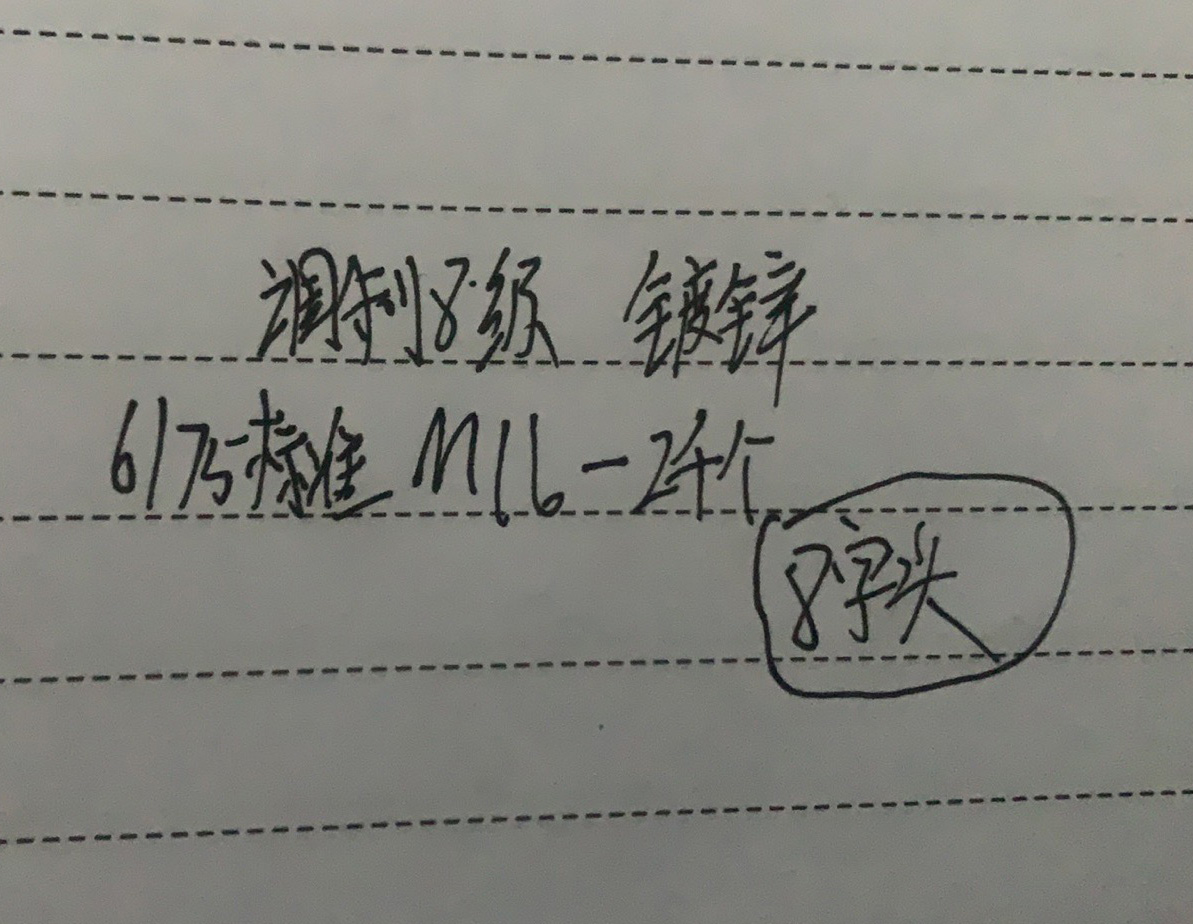 调制8级 镀锌
6175标准 M16-2千个
8字头